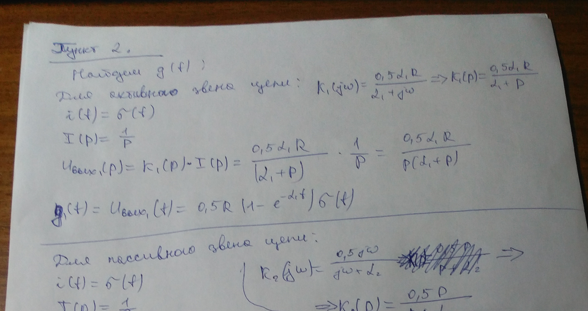 Пункт 2.
Найдем g(t):
Для активного звена цепи: K₁(jω) = 0,5α₁R / (α₁ + jω) => K₁(p) = 0,5α₁R / (α₁ + p)
i(t) = σ(t)
I(p) = 1/p
Uвых₁(p) = K₁(p) · I(p) = 0,5α₁R / (α₁ + p) · 1/p = 0,5α₁R / p(α₁ + p)
g₁(t) = Uвых₁(t) = 0,5R (1 - e^(-α₁t)) σ(t)
Для пассивного звена цепи:
K₂(jω) = 0,5jω / (jω + α₂) =>
i(t) = σ(t)
I(p) = 1/
=> K₂(p) = 0,5p